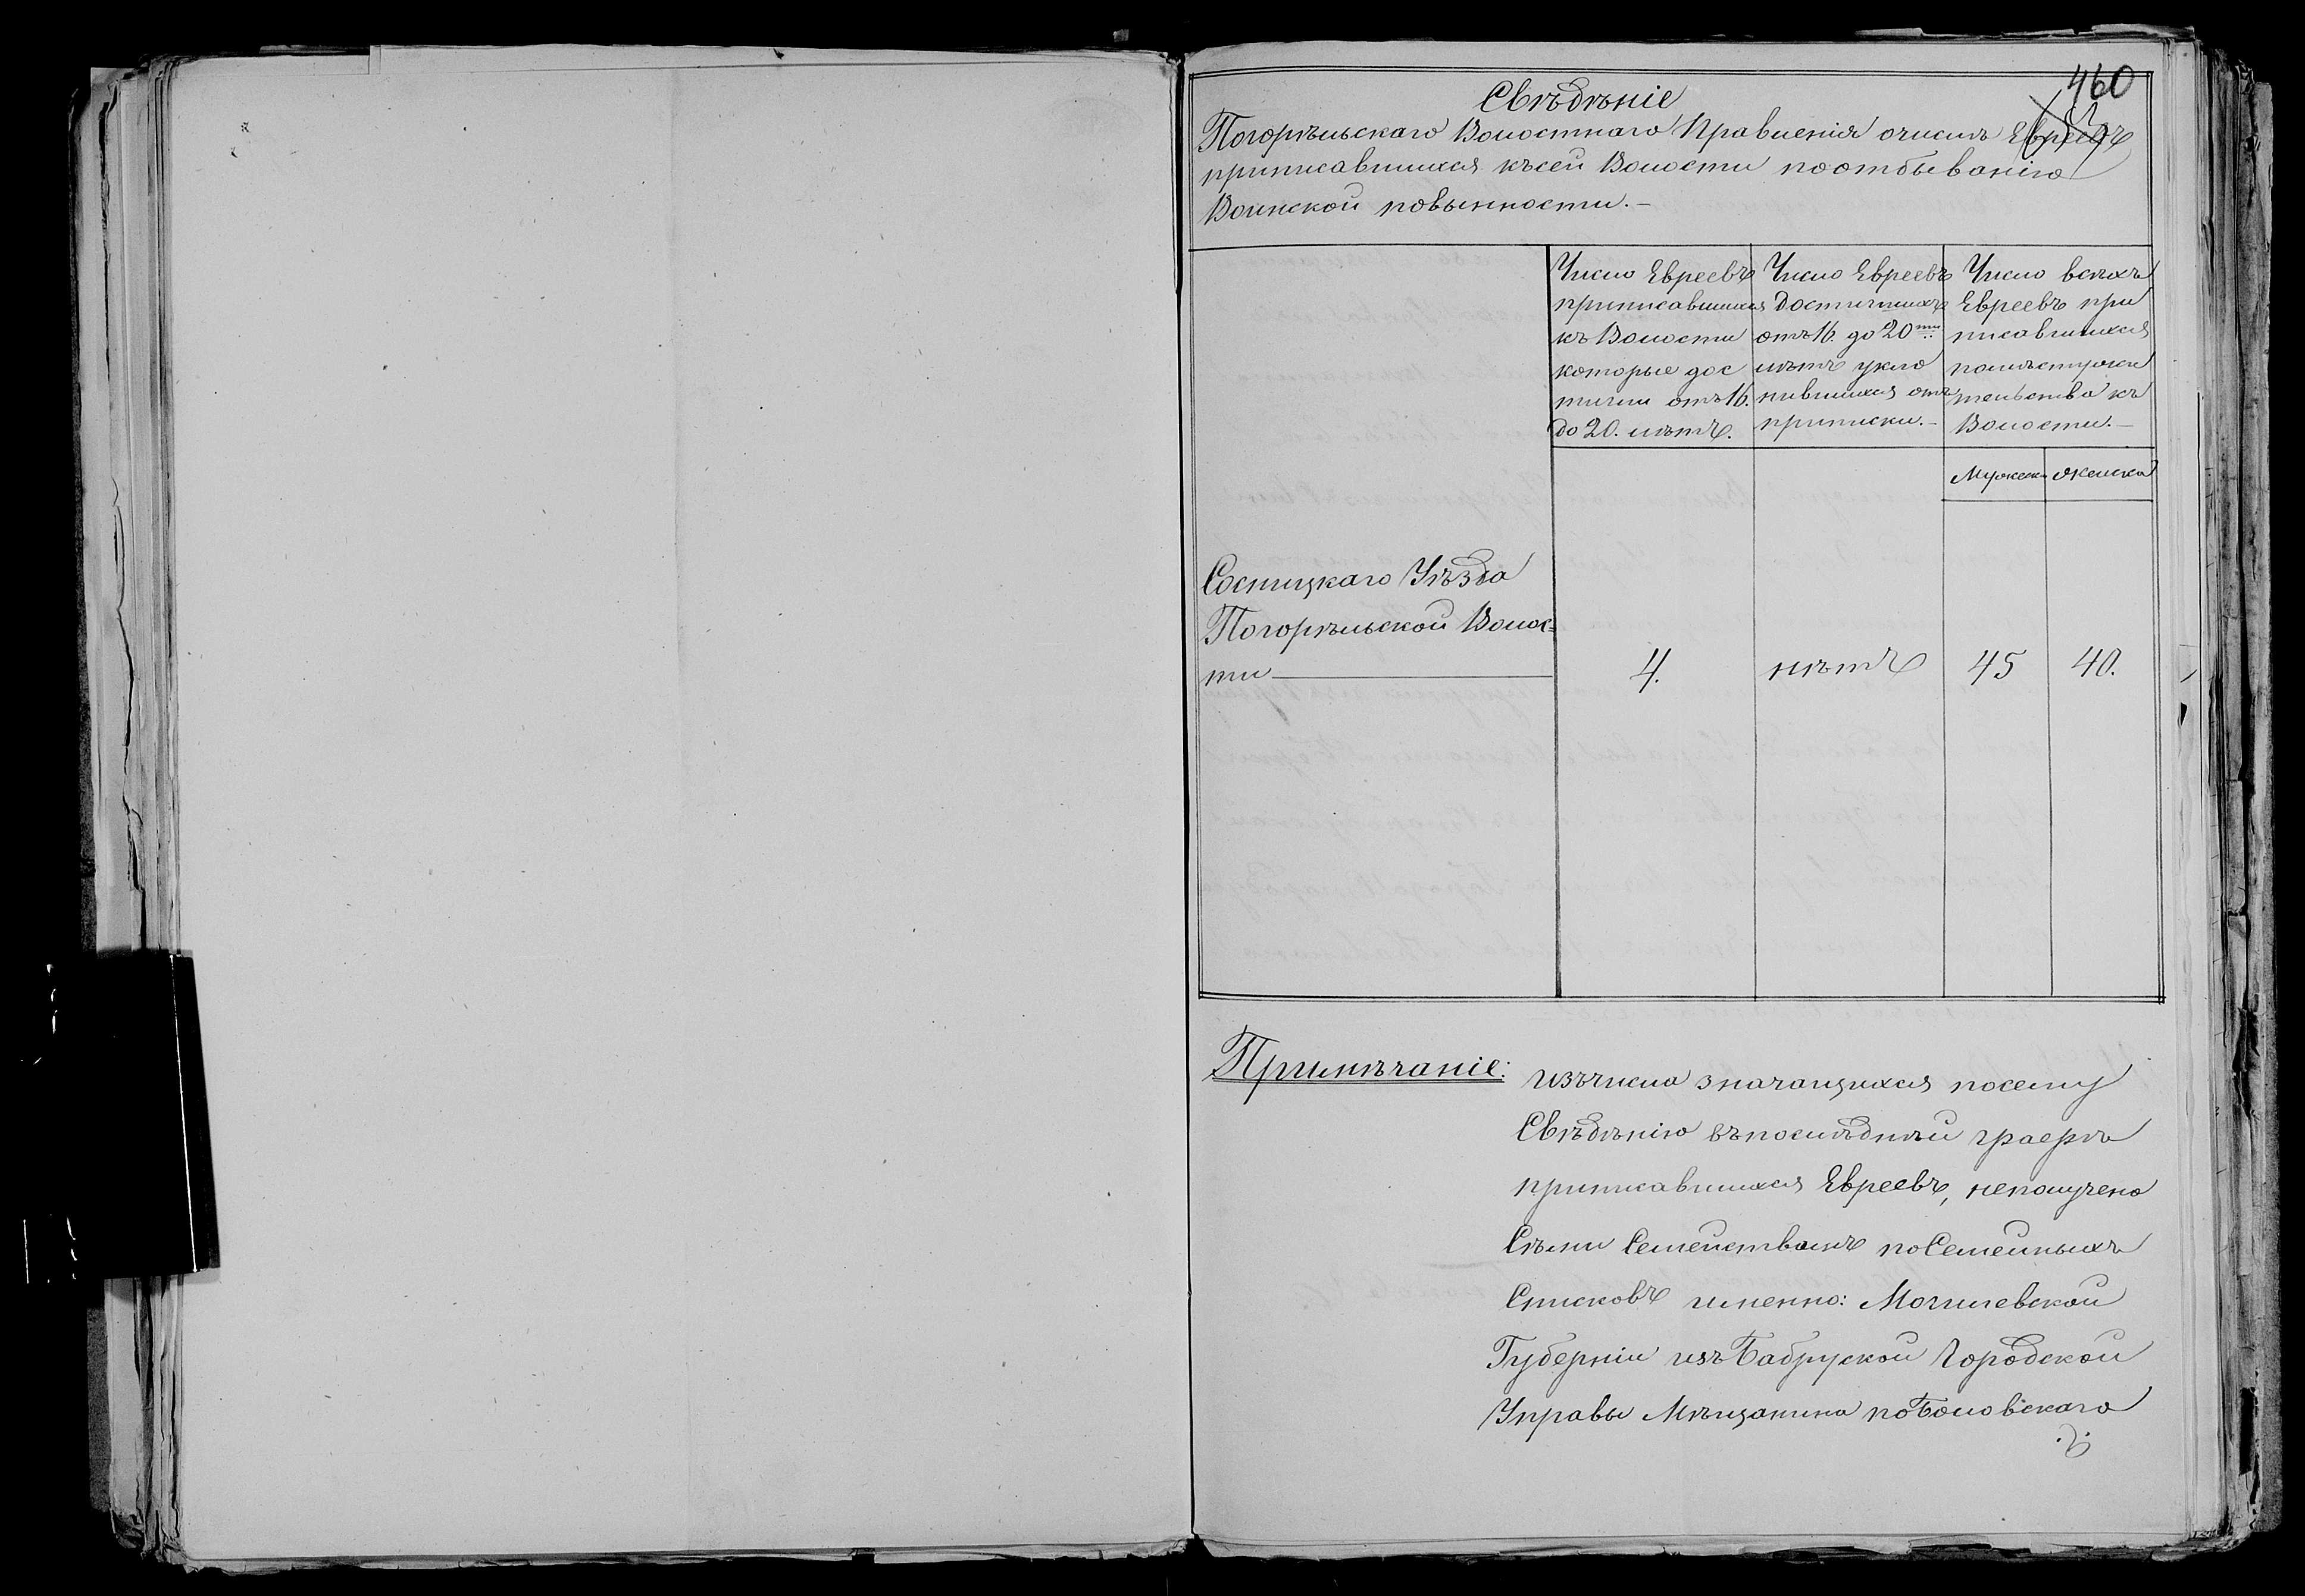 460
Свѣдѣніе
Погорѣльскаго Волостнаго Правленія очислѣ Евреевъ
приписавшихся късей Волости поотбыванію
Воинской повынности.—
Число Евреевъ
приписавшихся
къ Волости
которые дос
тигли отъ 16.
до 20. лѣтъ.
Число Евреевъ
достигшихъ
отъ 16. до 20ти
лѣтъ укло
нившихся отъ
приписки.—
Число всѣхъ
Евреевъ при
писавшихся
помѣстужи
тельства къ
Волости.—
Мужеска
Женска
Сосницкаго Уѣзда
Погорѣльской Волос=
ти
4.
нѣтъ
45
40.
Примѣчаніе:
изъчисла значащихся посему
Свѣдѣнію въпослѣдней графѣ
приписавшихся Евреевъ, неполучено
Сѣми Семействамъ поСемейныхъ
Списковъ именно: Могилевской
Губерніи изъ Бабруской Городской
Управы Мѣщанина поБоловскаго